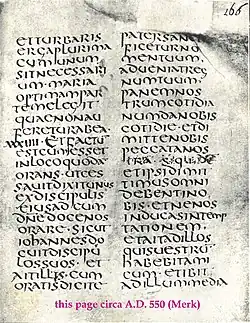 166
ETTURBARIS
ERGAPLURIMA
UNUM
SITNECESSARI
UMMARIA
OPTIMAMPAR
TEMELEGIT
QUAENONAU
FERETURABEA
ETFACTU
ESTCUMESSET
INLOCOQUODA
ORANSUTCES
SAUITDIXITUNUS
EXDISCIPULIS
EIUSADEUM
DNEDOCENOS
ORARESICUT
IOHANNESDO
CUITDISCIPU
LOSSUOSET
AITILLISCUM
ORATISDICITE
PATERSANCTI
FICETURNO
MENTUUM
ADUENIATREG
NUMTUUM
PANEMNOS
TRUMCOTIDIA
NUMDANOBIS
COTIDIEETDI
MITTENOBIS
PECCATANOS
TRASIQUIDE
ETIPSIDIMIT
TIMUSOMNI
DEBENTINO
BISETNENOS
INDUCASINTEMP
TATIONEM
ETAITADILLOS
QUISUESTRU
HABEBITAMI
CUMETIBIT
ADILLUMMEDIA
this page circa A.D. 550 (Merk)